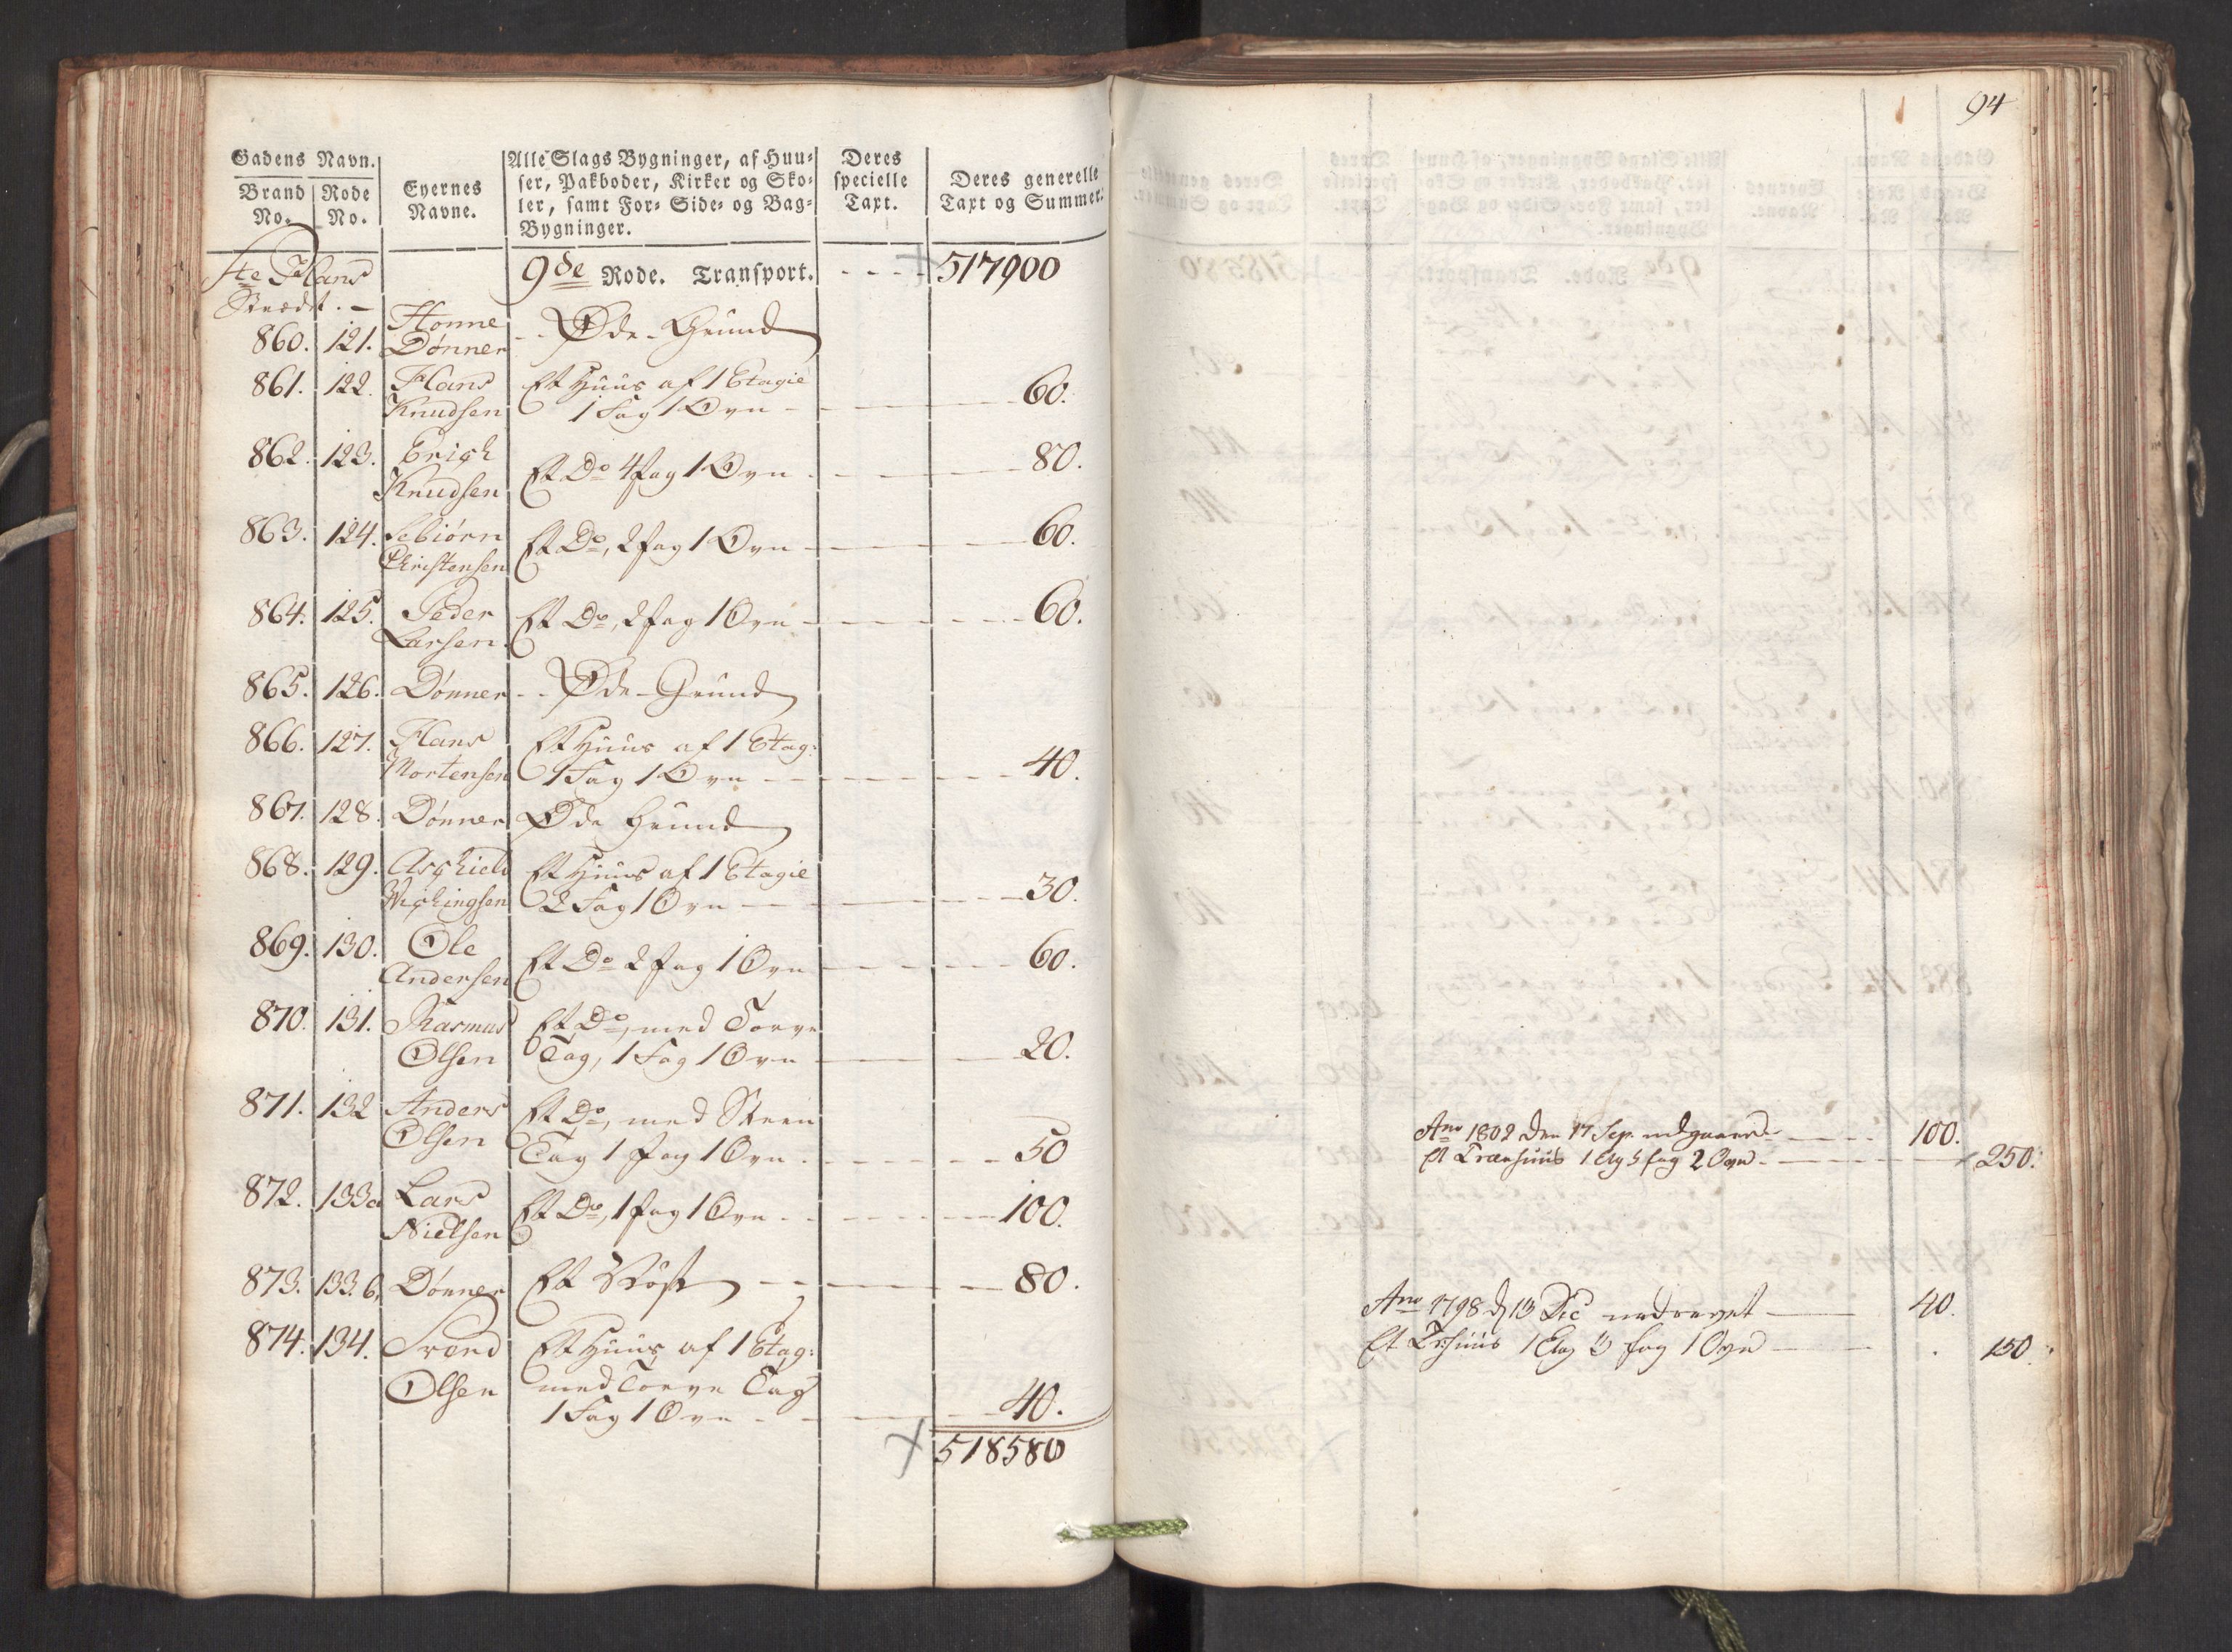 Gadens Navn.
Brand No. Rode No. Eyernes Navne. Alle Slags Bygninger, af Huu-
ser, Pakboder, Kirker og Sko-
ler, samt For- Side- og Bag-
Bygninger. Deres specielle Taxt. Deres generelle Taxt og Summer.
Ste Hans 9de Rode. Transport. 517900
Strædet. -
860. 121. Hønne Dønner Øde Grund
861. 122. Hans Et Huus af 1 Etagie
Knudsen 1 Fag 1 Ovn 60.
862. 123. Erich
Knudsen Et Do 4 fag 1 Ovn 80.
863. 124. Sebiørn
Christensen Et Do, 2 fag 1 Ovn 60.
864. 125. Peder
Larsen Et Do, 2 fag 1 Ovn 60.
865. 126. Dønner Øde Grund
866. 127. Hans Et Huus af 1 Etag:
Mortensen 1 Fag 1 Ovn 40.
867. 128. Dønner Øde Grund
868. 129. Aschield Et Huus af 1 Etagie
Wichingsen 2 Fag 1 Ovn 30.
869. 130. Ole
Andersen Et Do 2 fag 1 Ovn 60.
870. 131. Rasmus Et Do, med Torve
Olsen Tag, 1 Fag 1 Ovn 20.
871. 132 Anders Et Do, med Steen
Olsen Tag 1 fag 1 Ovn 50
872. 133a Lars
Nielsen Et Do, 1 fag 1 Ovn 100.
873. 133.b. Dønner Et 80.
874. 134. Svend Et Huus af 1 Etag:
Olsen med Torve Tag
1 Fag 1 Ovn 40.
518580
94
Ano 1802 den 17 Sep. udgaaer 100.
Et Træehuus 1 Etg 5 fag 2 Ovn 250.
Ano 1798 d 13 Dec nedrevet 40.
Et Træhuus 1 Etag 3 fag 1 Ovn 150.